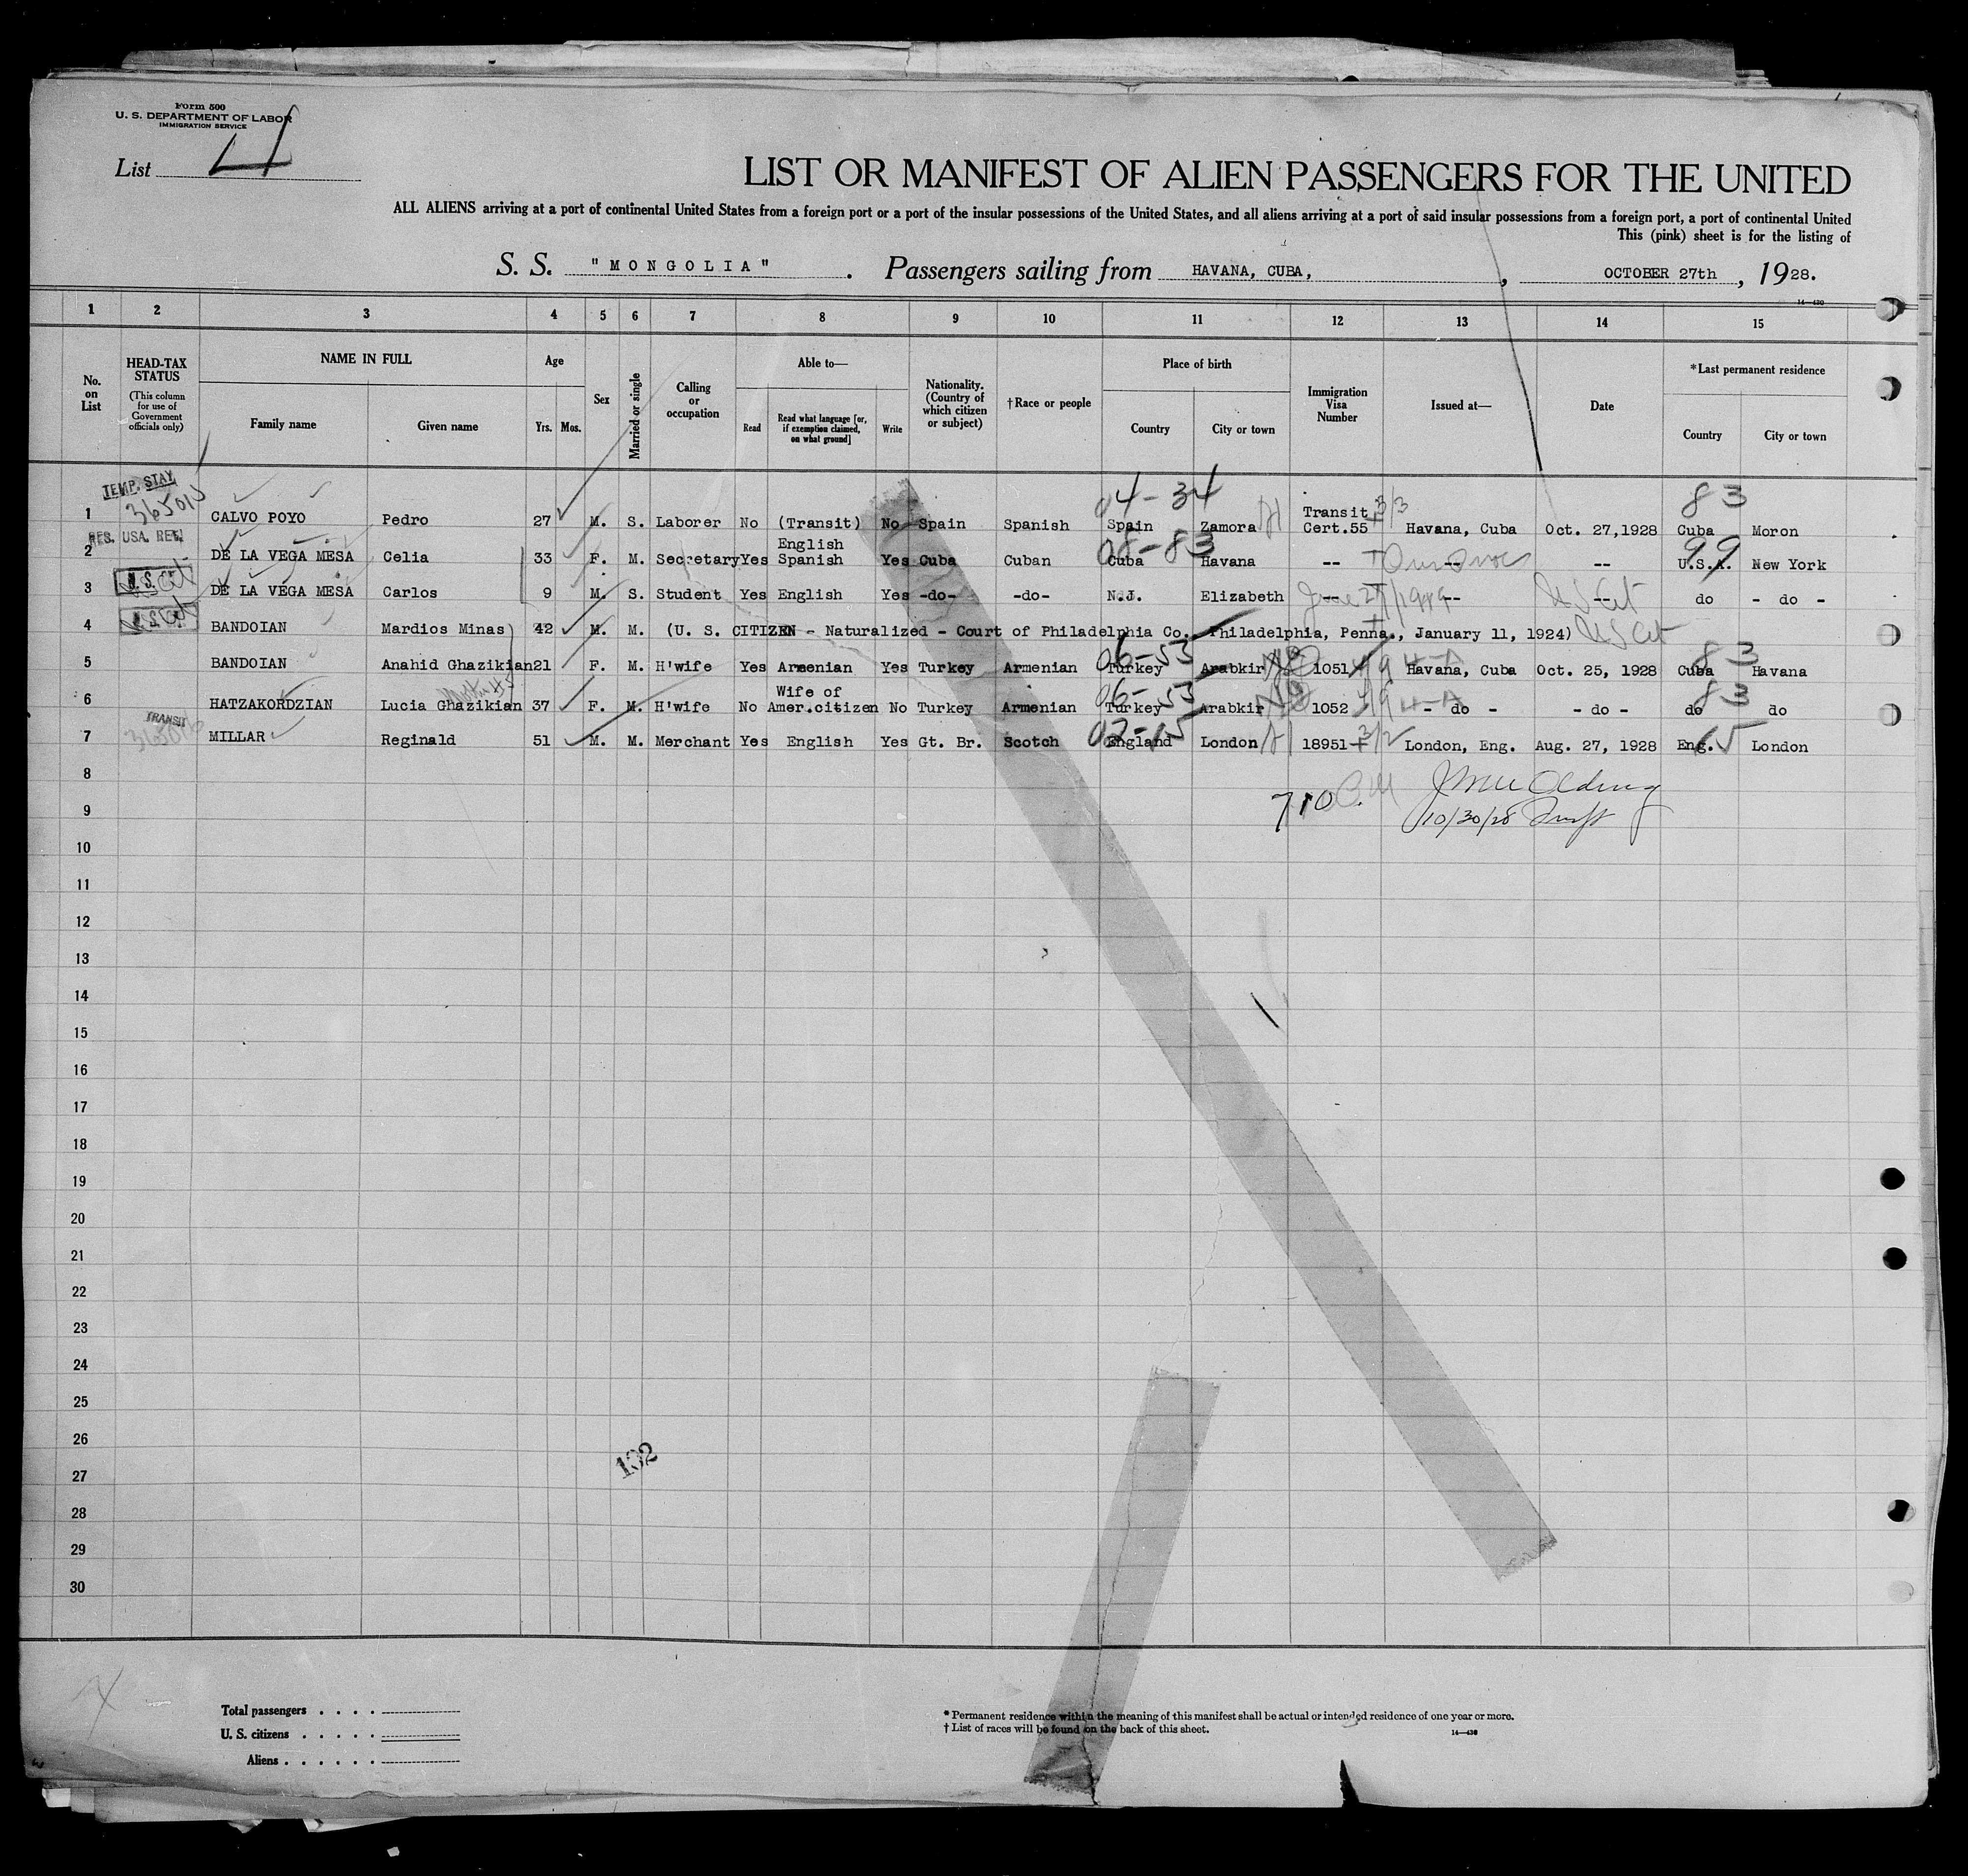 Form 500
U. S. DEPARTMENT OF LABOR
IMMIGRATION SERVICE
List 4
LIST OR MANIFEST OF ALIEN PASSENGERS FOR THE UNITED
ALL ALIENS arriving at a port of continental United States from a foreign port or a port of the insular possessions of the United States, and all aliens arriving at a port of said insular possessions from a foreign port, a port of continental United
This (pink) sheet is for the listing of
S. S. "MONGOLIA". Passengers sailing from HAVANA, CUBA, , OCTOBER 27th, 1928.
14—430
1 2 3 4 5 6 7 8 9 10 11 12 13 14 15
No. on List
HEAD-TAX STATUS
(This column for use of Government officials only)
NAME IN FULL
Family name Given name
Age
Yrs. Mos.
Sex
Married or single
Calling or occupation
Able to—
Read Read what language [or, if exemption claimed, on what ground] Write
Nationality. (Country of which citizen or subject)
†Race or people
Place of birth
Country City or town
Immigration Visa Number
Issued at—
Date
*Last permanent residence
Country City or town
TEMP. STAY
04-34 83
1 CALVO POYO Pedro 27 M. S. Laborer No (Transit) No Spain Spanish Spain Zamora Transit Cert.55 3/3 Havana, Cuba Oct. 27,1928 Cuba Moron
RES. USA. RET.
08-83 99
2 DE LA VEGA MESA Celia 33 F. M. Secretary Yes English Spanish Yes Cuba Cuban Cuba Havana -- -- -- U.S.A. New York
3 DE LA VEGA MESA Carlos 9 M. S. Student Yes English Yes -do- -do- N.J. Elizabeth -- -- -- do - do -
US Cit
4 BANDOIAN Mardios Minas 42 M. M. (U. S. CITIZEN - Naturalized - Court of Philadelphia Co. Philadelphia, Penna., January 11, 1924) US Cit
06-53 83
5 BANDOIAN Anahid Ghazikian 21 F. M. H'wife Yes Armenian Yes Turkey Armenian Turkey Arabkir 1051 Havana, Cuba Oct. 25, 1928 Cuba Havana
06-53 83
6 HATZAKORDZIAN Lucia Ghazikian 37 F. M. H'wife No Wife of Amer.citizen No Turkey Armenian Turkey Arabkir 1052 - do - - do - do do
TRANSIT
02-15 15
7 MILLAR Reginald 51 M. M. Merchant Yes English Yes Gt. Br. Scotch England London 18951 3/2 London, Eng. Aug. 27, 1928 Eng. London
8
710
10/30/28
9
10
11
12
13
14
15
16
17
18
19
20
21
22
23
24
25
26
132
27
28
29
30
Total passengers . . . .
U. S. citizens . . . . .
Aliens . . . . . .
* Permanent residence within the meaning of this manifest shall be actual or intended residence of one year or more.
† List of races will be found on the back of this sheet.
14—430